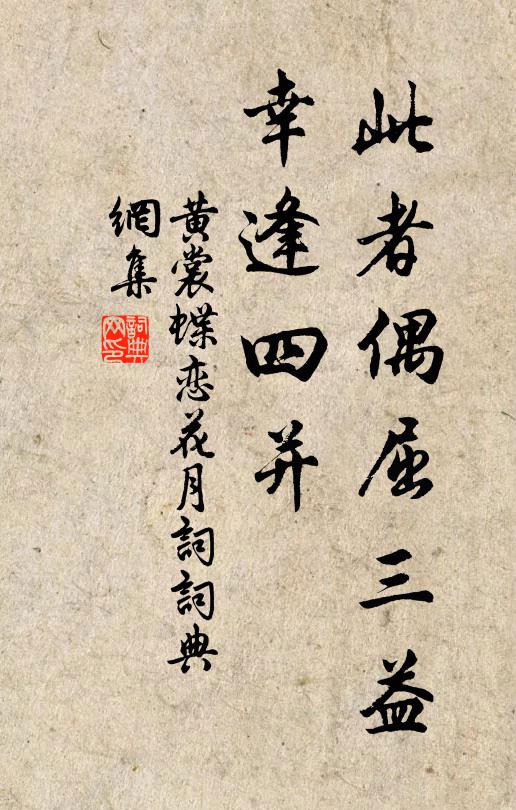 此者偶屈三益
幸逢四并
黄裳蝶恋花月詞詞典
網集
詞典
网印